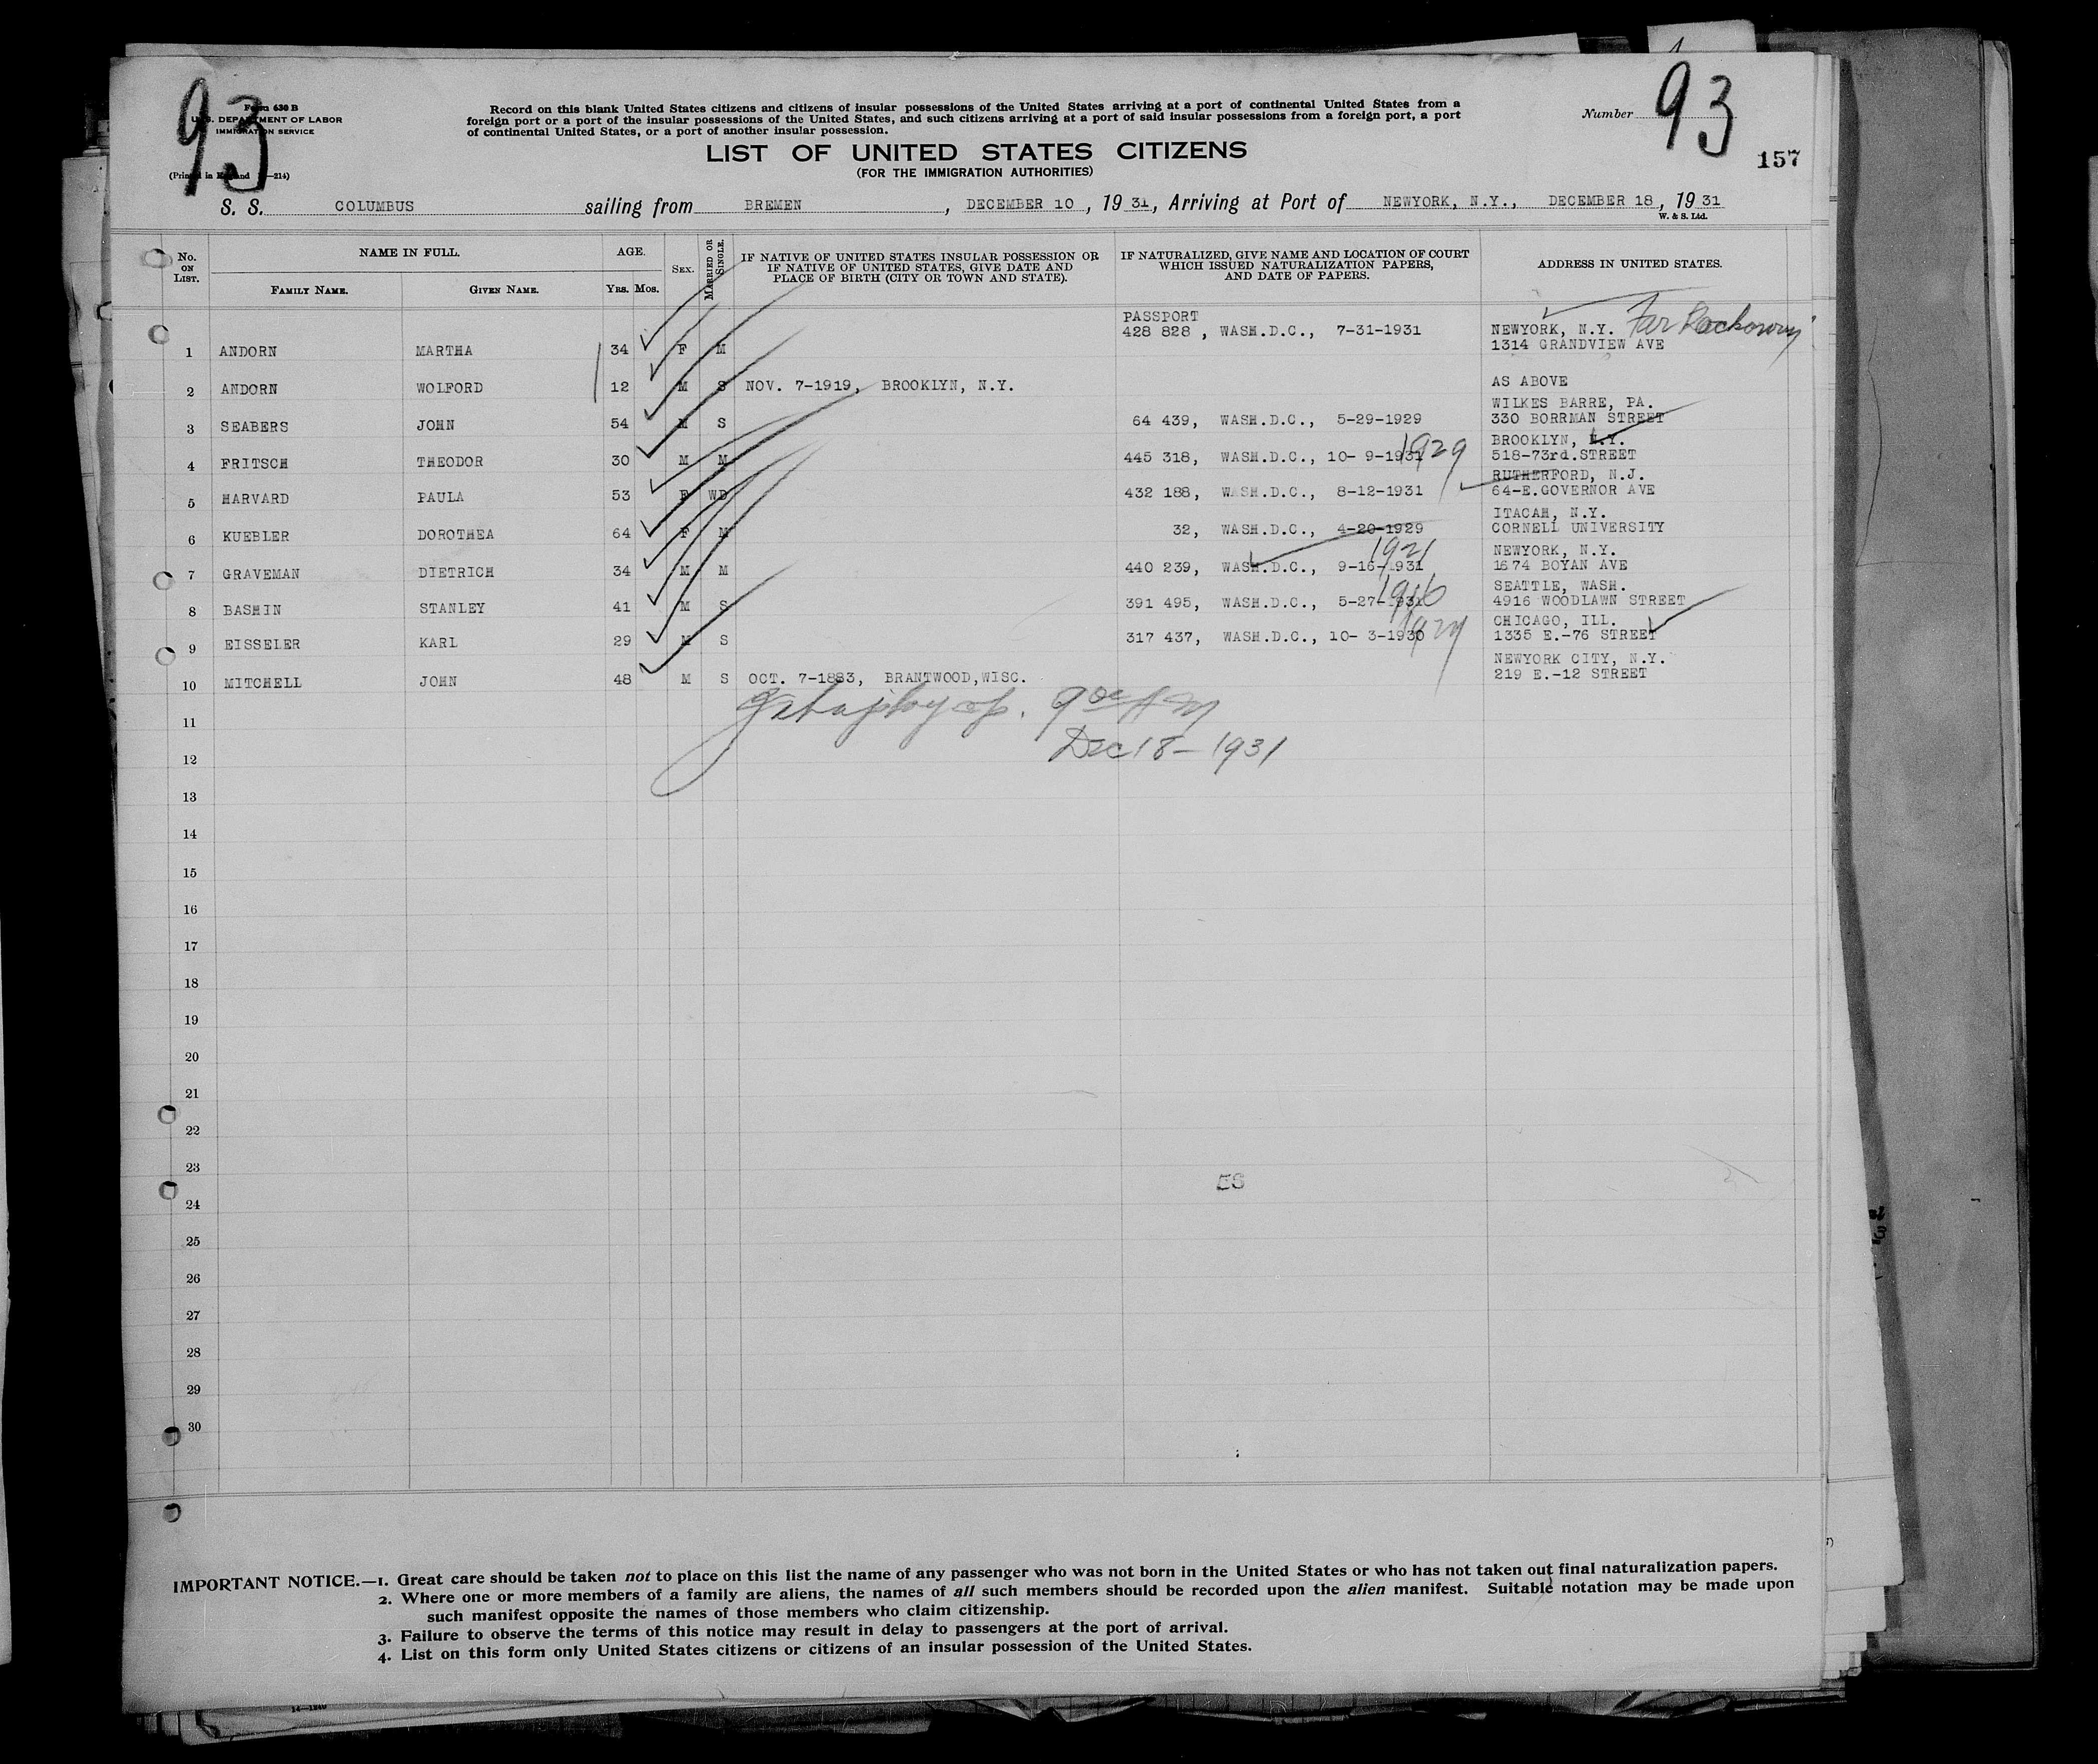 93
Form 630 B
U.S. DEPARTMENT OF LABOR
IMMIGRATION SERVICE
(Printed in England —214)
Record on this blank United States citizens and citizens of insular possessions of the United States arriving at a port of continental United States from a
foreign port or a port of the insular possessions of the United States, and such citizens arriving at a port of said insular possessions from a foreign port, a port
of continental United States, or a port of another insular possession.
Number 93
157
LIST OF UNITED STATES CITIZENS
(FOR THE IMMIGRATION AUTHORITIES)
S. S. COLUMBUS sailing from BREMEN, DECEMBER 10, 1931, Arriving at Port of NEWYORK, N.Y., DECEMBER 18, 1931
W. & S. Ltd.
No. ON LIST. NAME IN FULL. AGE. SEX. MARRIED OR SINGLE. IF NATIVE OF UNITED STATES INSULAR POSSESSION OR IF NATIVE OF UNITED STATES, GIVE DATE AND PLACE OF BIRTH (CITY OR TOWN AND STATE). IF NATURALIZED, GIVE NAME AND LOCATION OF COURT WHICH ISSUED NATURALIZATION PAPERS, AND DATE OF PAPERS. ADDRESS IN UNITED STATES.
FAMILY NAME. GIVEN NAME. YRS. MOS.
PASSPORT
1 ANDORN MARTHA 34 F M 428 828 , WASH.D.C., 7-31-1931 NEWYORK, N.Y. Far Rockaway 1314 GRANDVIEW AVE
2 ANDORN WOLFORD 12 M S NOV. 7-1919, BROOKLYN, N.Y. AS ABOVE
3 SEABERS JOHN 54 M S 64 439, WASH.D.C., 5-29-1929 WILKES BARRE, PA. 330 BORRMAN STREET
4 FRITSCH THEODOR 30 M M 445 318, WASH.D.C., 10- 9-1931 1929 BROOKLYN, N.Y. 518-73rd.STREET
5 HARVARD PAULA 53 F WD 432 188, WASH.D.C., 8-12-1931 RUTHERFORD, N.J. 64-E.GOVERNOR AVE
6 KUEBLER DOROTHEA 64 F M 32, WASH.D.C., 4-20-1929 ITACAH, N.Y. CORNELL UNIVERSITY
7 GRAVEMAN DIETRICH 34 M M 440 239, WASH.D.C., 9-16-1931 1921 NEWYORK, N.Y. 1674 BOYAN AVE
8 BASHIN STANLEY 41 M S 391 495, WASH.D.C., 5-27-1931 1916 SEATTLE, WASH. 4916 WOODLAWN STREET
9 EISSELER KARL 29 M S 317 437, WASH.D.C., 10- 3-1930 CHICAGO, ILL. 1335 E.-76 STREET
10 MITCHELL JOHN 48 M S OCT. 7-1883, BRANTWOOD,WISC. NEWYORK CITY, N.Y. 219 E.-12 STREET
11
Dec 18 - 1931
12
13
14
15
16
17
18
19
20
21
22
23
24
25
26
27
28
29
30
IMPORTANT NOTICE.—1. Great care should be taken not to place on this list the name of any passenger who was not born in the United States or who has not taken out final naturalization papers.
2. Where one or more members of a family are aliens, the names of all such members should be recorded upon the alien manifest. Suitable notation may be made upon
such manifest opposite the names of those members who claim citizenship.
3. Failure to observe the terms of this notice may result in delay to passengers at the port of arrival.
4. List on this form only United States citizens or citizens of an insular possession of the United States.